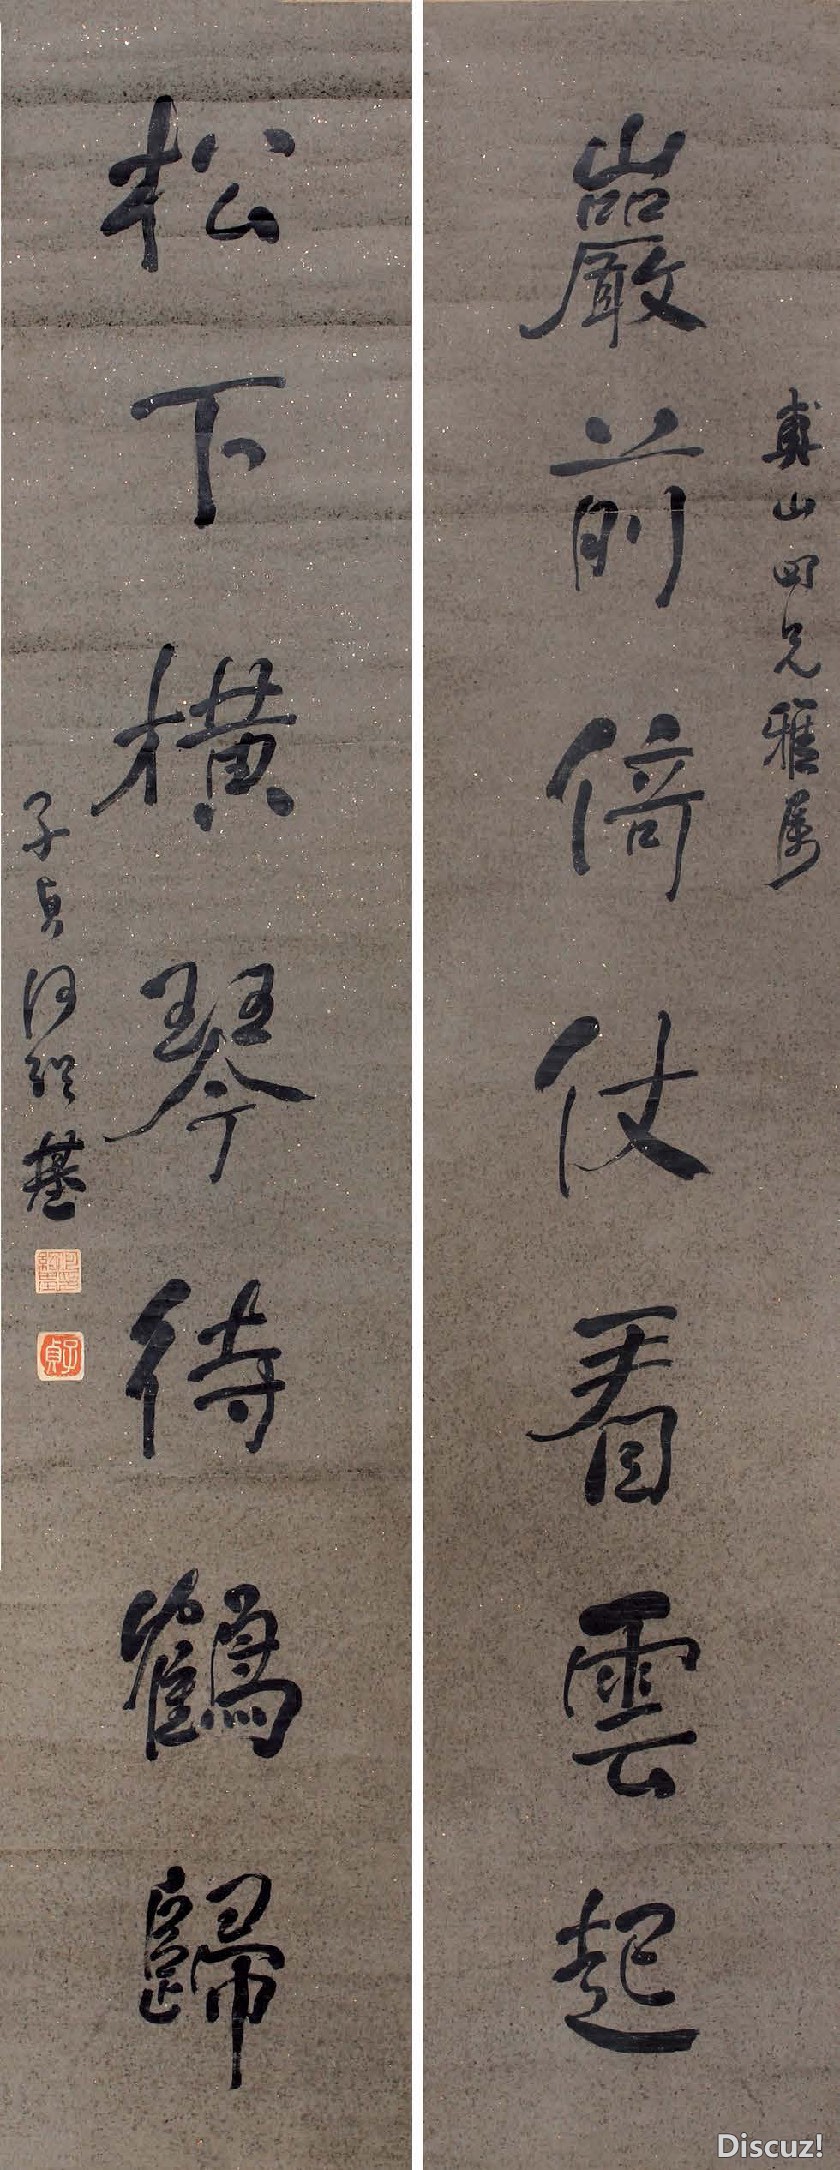 山四兄雅屬
巖前倚仗看雲起
松下橫琴待鶴歸
子貞何紹基
子貞
Discuz!